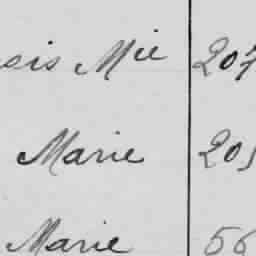 sis Mie 207
Marie 205
Marie 56